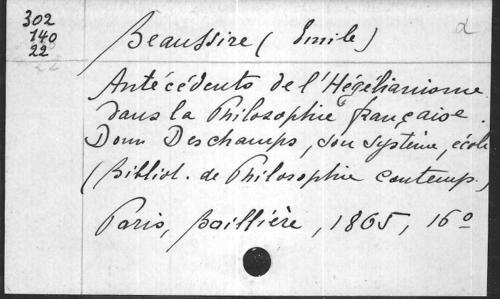 302
140
22
22
Beaussire (Emile)
d
Antécédents de l'Hégélianisme
dans la Philosophie française.
Dom Deschamps, son système, école
(Bibliot. de Philosophie contemp.)
Paris, Baillière, 1865, 16º